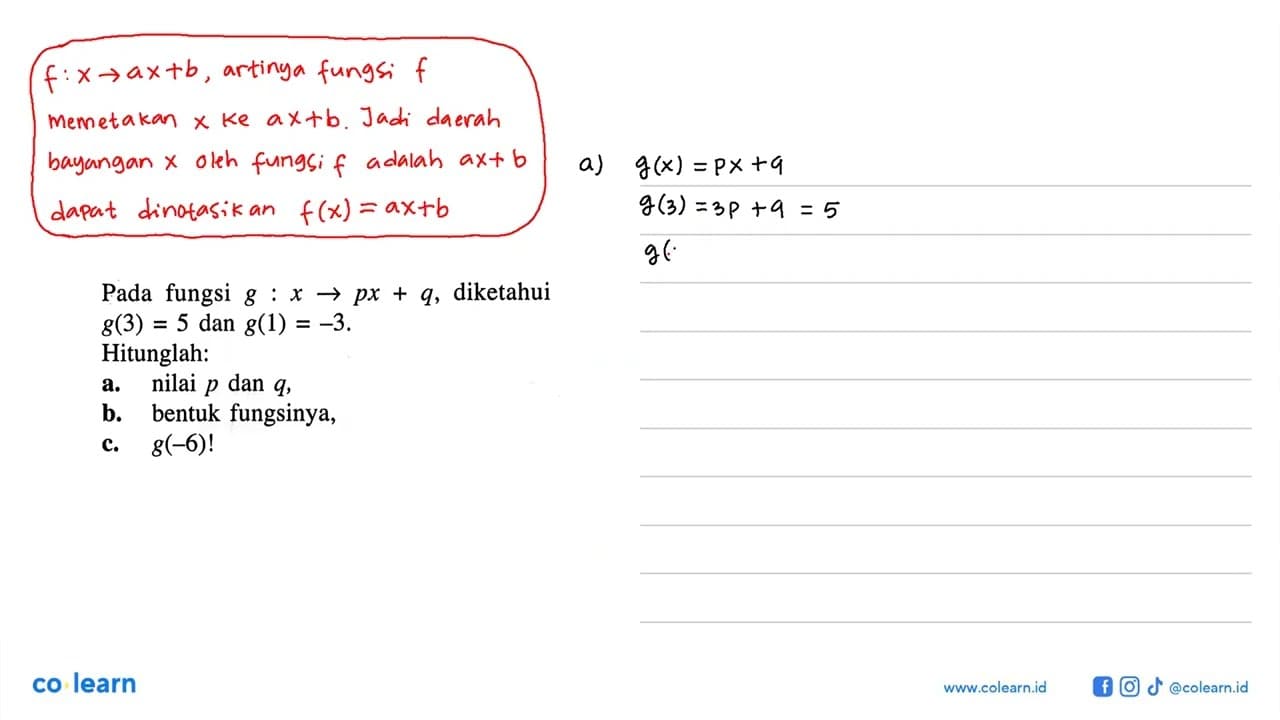 f : x → ax + b, artinya fungsi f
memetakan x ke ax + b. Jadi daerah
bayangan x oleh fungsi f adalah ax + b
dapat dinotasikan f(x) = ax + b
Pada fungsi g : x → px + q, diketahui
g(3) = 5 dan g(1) = –3.
Hitunglah:
a. nilai p dan q,
b. bentuk fungsinya,
c. g(–6)!
a) g(x) = px + q
g(3) = 3p + q = 5
g(
co learn
www.colearn.id
@colearn.id